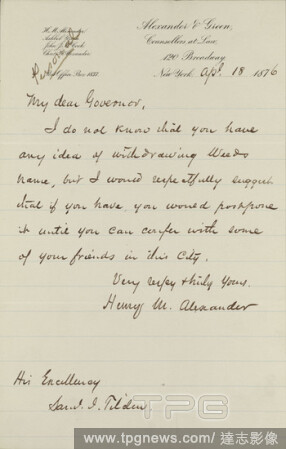 Alexander & Green,
Counsellors at Law,
120 Broadway
Post Office Box 1837
New York, Apl. 18 1876
Personal
My dear Governor,
I do not know that you have
any idea of withdrawing Weeds
name, but I would respectfully suggest
that if you have, you would postpone
it until you can confer with some
of your friends in this City.
Very respy & truly yours.
Henry M. Alexander
His Excellency
Saml. J. Tilden
TPG
www.tpgnews.com | 達志影像